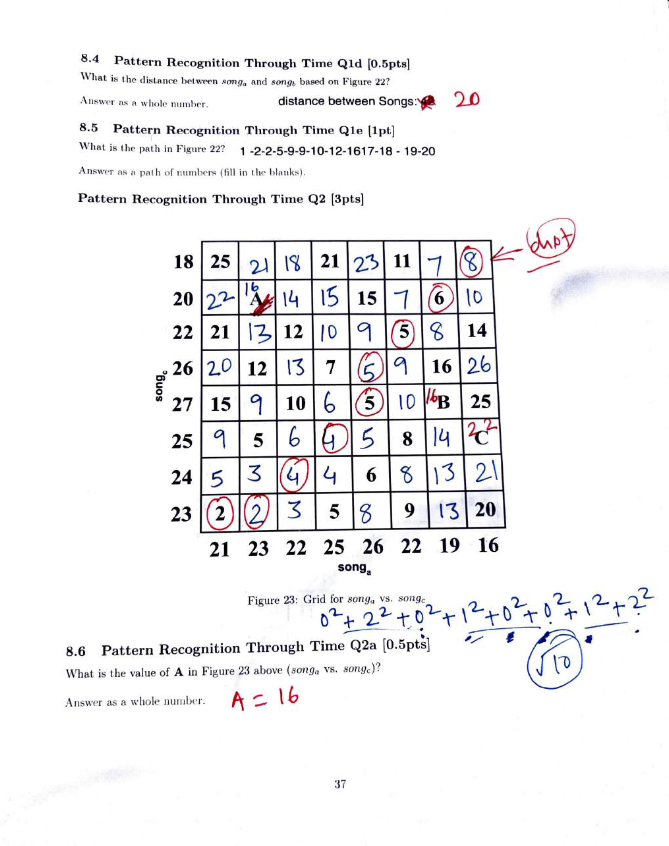 8.4 Pattern Recognition Through Time Q1d [0.5pts]
What is the distance between song_a and song_b based on Figure 22?
Answer as a whole number. distance between Songs: 20
8.5 Pattern Recognition Through Time Q1e [1pt]
What is the path in Figure 22? 1 -2-2-5-9-9-10-12-1617-18 - 19-20
Answer as a path of numbers (fill in the blanks).
Pattern Recognition Through Time Q2 [3pts]
18 25 21 18 21 23 11 7 8
20 22 16 A 14 15 15 7 6 10
22 21 13 12 10 9 5 8 14
26 20 12 13 7 5 9 16 26
song_c
27 15 9 10 6 5 10 16 B 25
25 9 5 6 4 5 8 14 22 C
24 5 3 4 4 6 8 13 21
23 2 2 3 5 8 9 13 20
21 23 22 25 26 22 19 16
song_a
Figure 23: Grid for song_a vs. song_c
0² + 2² + 0² + 1² + 0² + 0² + 1² + 2²
√10
8.6 Pattern Recognition Through Time Q2a [0.5pts]
What is the value of A in Figure 23 above (song_a vs. song_c)?
Answer as a whole number. A = 16
37